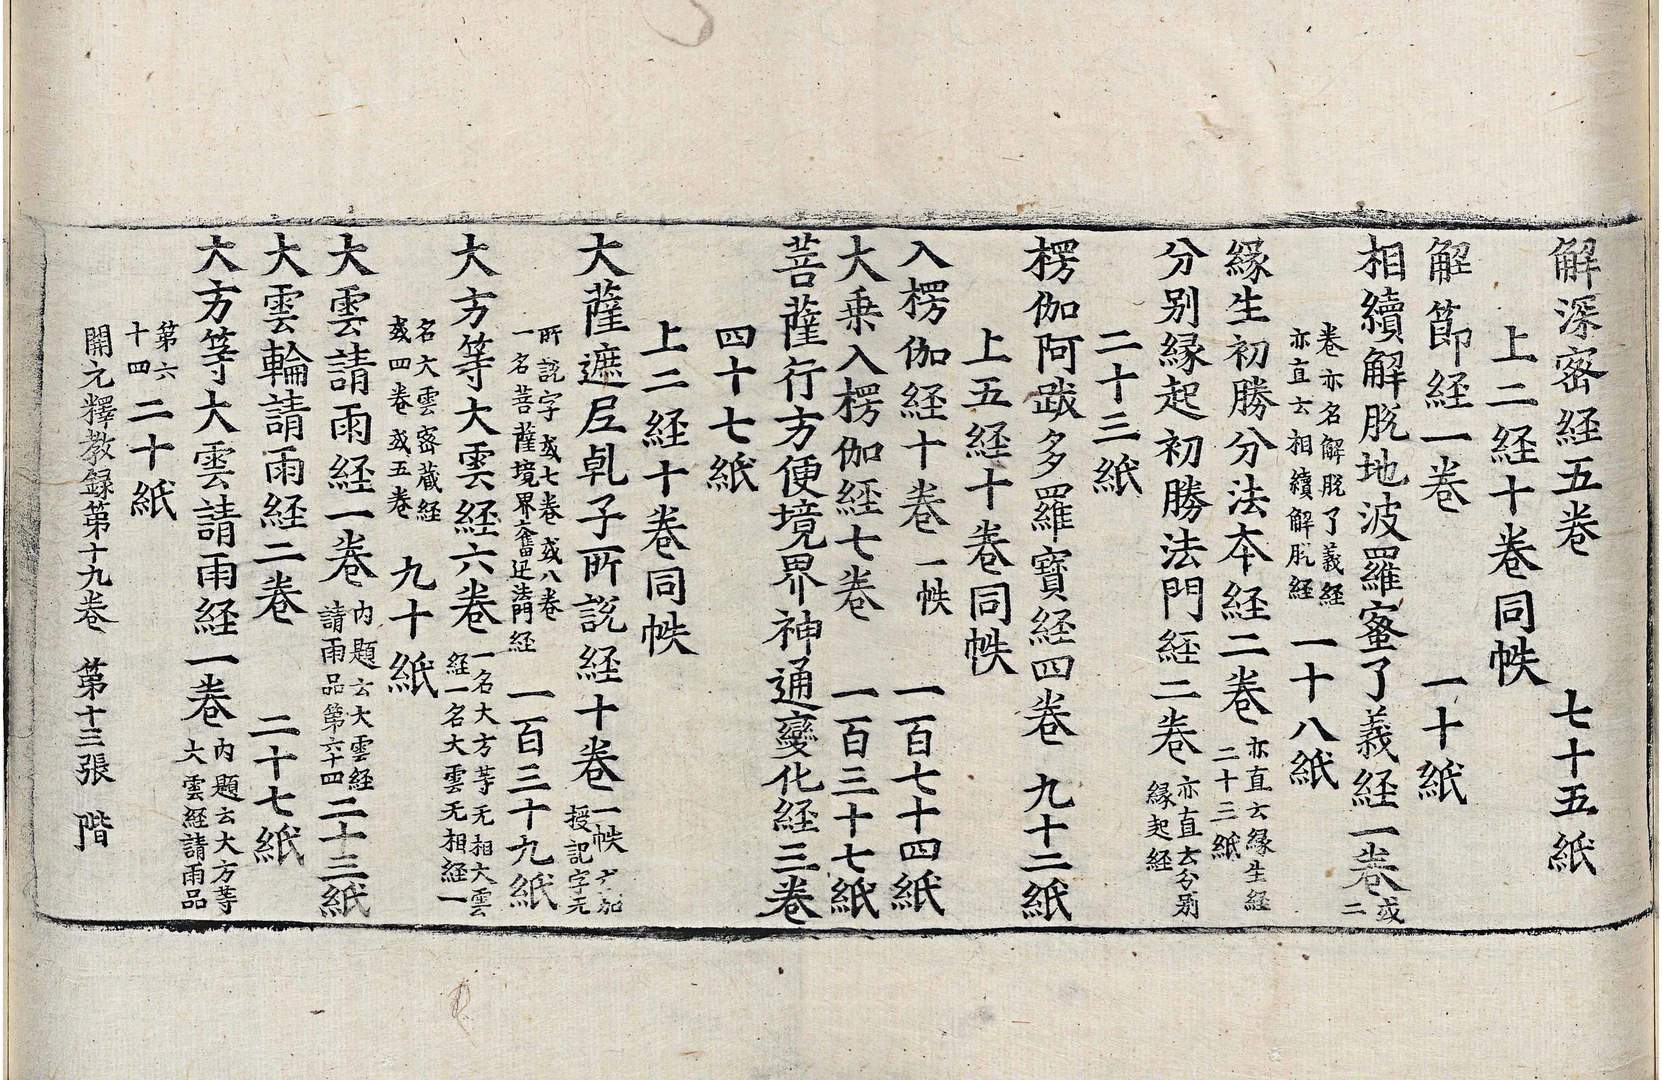 解深密経五卷 七十五紙
上二経十卷同帙
解節経一卷 一十紙
相續解脱地波羅蜜了義経一卷 或二
卷亦名解脱了義経
亦直云相續解脱経 一十八紙
縁生初勝分法本経二卷 亦直云縁生経
二十三紙
分别縁起初勝法門経二卷 亦直云分别
縁起経
二十三紙
楞伽阿跋多羅寶経四卷 九十二紙
上五経十卷同帙
入楞伽経十卷 一帙 一百七十四紙
大乗入楞伽経七卷 一百三十七紙
菩薩行方便境界神通變化経三卷
四十七紙
上二経十卷同帙
大薩遮尼乹子所説経十卷 一帙 加
授記字无
所説字或七卷或八卷
一名菩薩境界奮迅法門経 一百三十九紙
大方等大雲経六卷 一名大方等无相大雲
経一名大雲无相経一
名大雲密蔵経
或四卷或五卷 九十紙
大雲請雨経一卷 内題云大雲経
請雨品第六十四 二十三紙
大雲輪請雨経二卷 二十七紙
大方等大雲請雨経一卷 内題云大方等
大雲経請雨品
第六
十四 二十紙
開元釋教録第十九卷 第十三張 階